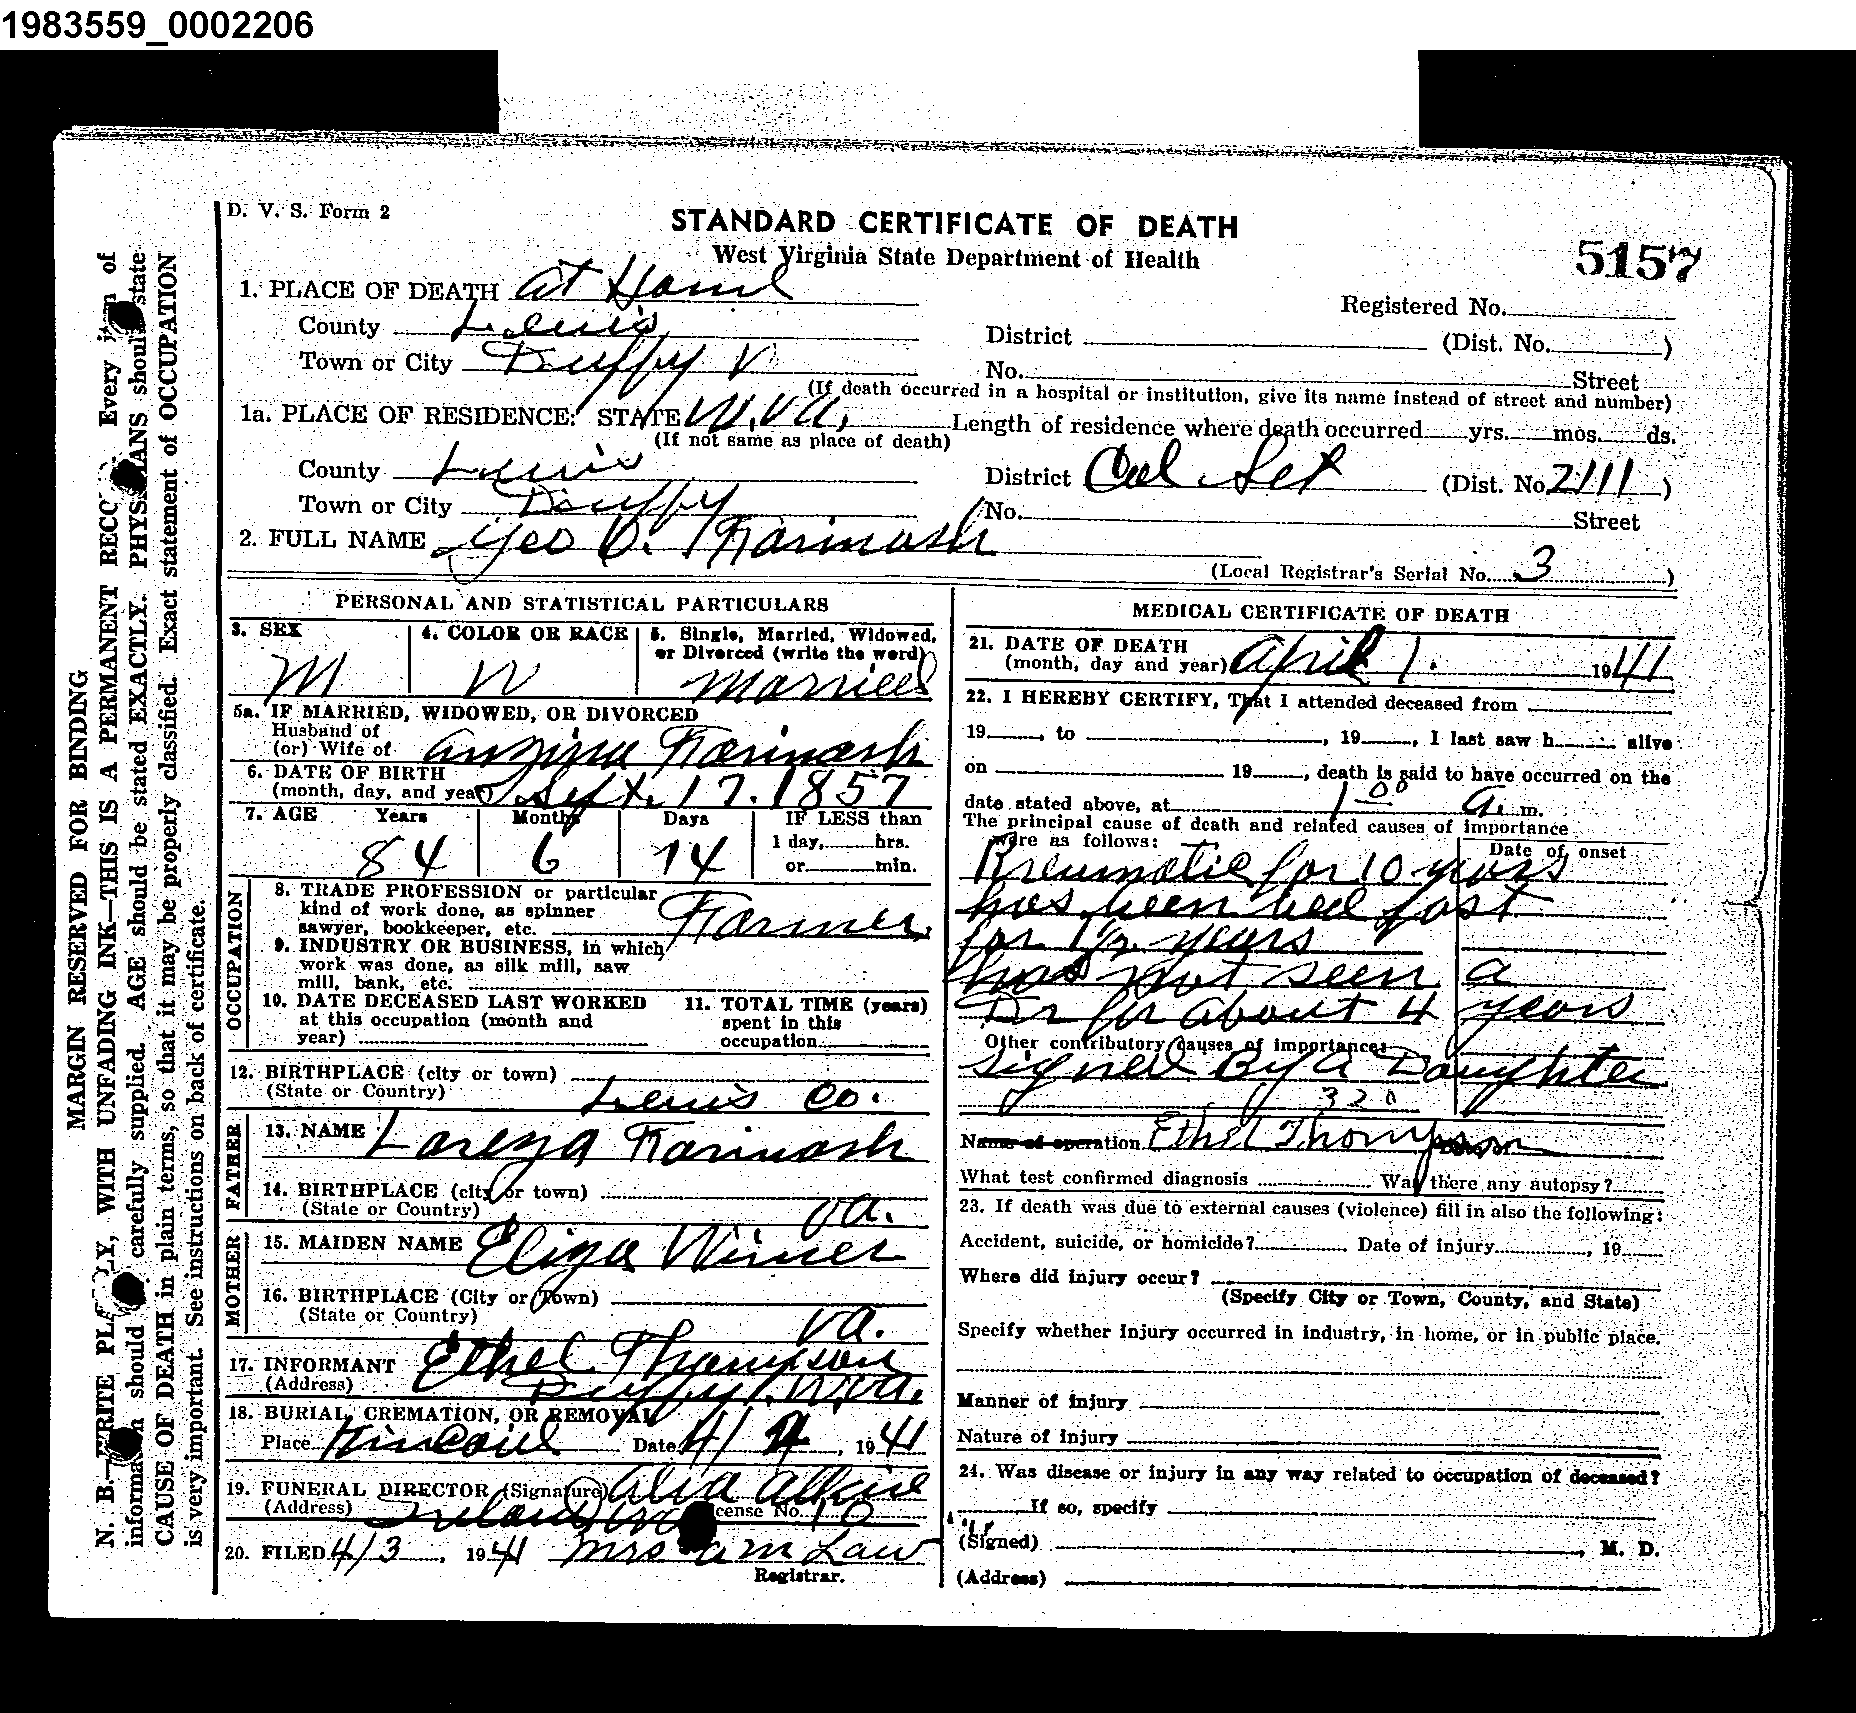 1983559_0002206
D. V. S. Form 2
STANDARD CERTIFICATE OF DEATH
West Virginia State Department of Health
5157
1. PLACE OF DEATH at Home
Registered No.
County Lewis
District (Dist. No. )
Town or City Duffy V
No. Street
(If death occurred in a hospital or institution, give its name instead of street and number)
1a. PLACE OF RESIDENCE: STATE W.Va.
(If not same as place of death)
Length of residence where death occurred yrs. mos. ds.
County Lewis
District Col Set (Dist. No 2111 )
Town or City Duffy
No. Street
2. FULL NAME Geo Karinash
(Local Registrar's Serial No. 3 )
PERSONAL AND STATISTICAL PARTICULARS
3. SEX M
4. COLOR OR RACE W
5. Single, Married, Widowed, or Divorced (write the word) Married
5a. IF MARRIED, WIDOWED, OR DIVORCED
Husband of
(or) Wife of Anzina Karinash
6. DATE OF BIRTH
(month, day, and year) Sept. 17. 1857
7. AGE Years Months Days IF LESS than
84 6 14 1 day, hrs.
or min.
OCCUPATION
8. TRADE PROFESSION or particular
kind of work done, as spinner
sawyer, bookkeeper, etc. Farmer
9. INDUSTRY OR BUSINESS, in which
work was done, as silk mill, saw
mill, bank, etc.
10. DATE DECEASED LAST WORKED
at this occupation (month and
year)
11. TOTAL TIME (years)
spent in this
occupation
12. BIRTHPLACE (city or town)
(State or Country) Lewis Co.
FATHER
13. NAME Lorenza Karinash
14. BIRTHPLACE (city or town)
(State or Country) Va.
MOTHER
15. MAIDEN NAME Eliza Wimer
16. BIRTHPLACE (City or Town)
(State or Country) Va.
17. INFORMANT Ethel Thompson
(Address) Duffy, W.Va.
18. BURIAL, CREMATION, OR REMOVAL
Place Kincaid Date 4/ , 1941
19. FUNERAL DIRECTOR (Signature) Alva Alkire
(Address) Ireland W.Va cense No. 10
20. FILED 4/3, 1941 Mrs A M Law
Registrar.
MEDICAL CERTIFICATE OF DEATH
21. DATE OF DEATH
(month, day and year) April 1. 1941
22. I HEREBY CERTIFY, That I attended deceased from
19 , to , 19 , I last saw h alive
on 19 , death is said to have occurred on the
date stated above, at 1 00 a. m.
The principal cause of death and related causes of importance
were as follows:
Date of onset
Rheumatic for 10 years
has been bed fast
for 1 1/2 years
has not seen a
Dr for about 4 years
Other contributory causes of importance:
Signed By a Daughter
320
Name of operation Ethel Thompson
What test confirmed diagnosis Was there any autopsy?
23. If death was due to external causes (violence) fill in also the following:
Accident, suicide, or homicide? Date of injury , 19
Where did injury occur?
(Specify City or Town, County, and State)
Specify whether injury occurred in industry, in home, or in public place.
Manner of injury
Nature of injury
24. Was disease or injury in any way related to occupation of deceased?
If so, specify
(Signed) , M. D.
(Address)
MARGIN RESERVED FOR BINDING
N. B.—WRITE PLA LY, WITH UNFADING INK—THIS IS A PERMANENT RECO Every it m of
informa n should carefully supplied. AGE should be stated EXACTLY. PHYS IANS should state
CAUSE OF DEATH in plain terms, so that it may be properly classified. Exact statement of OCCUPATION
is very important. See instructions on back of certificate.